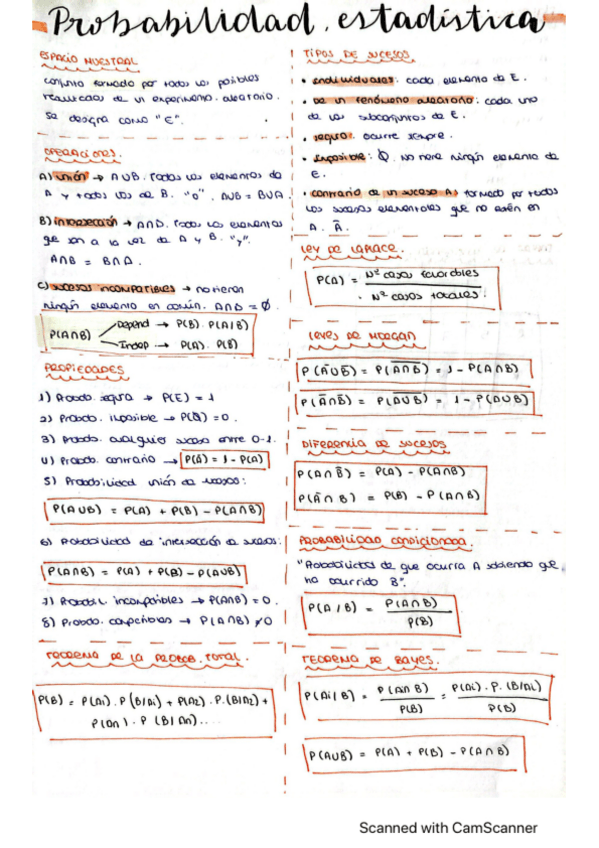 Probabilidad, estadística
ESPACIO MUESTRAL
conjunto formado por todos los posibles
resultados de un experimento aleatorio.
Se designa como "E".
OPERACIONES.
A) unión → AUB. Todos los elementos de
A y todos los de B. "o". AUB = BUA.
B) intersección → A∩B. Todos los elementos
que son a la vez de A y B. "y".
A∩B = B∩A.
C) sucesos incompatibles → no tienen
ningún elemento en común. A∩B = Ø.
P(A∩B)
Depend → P(B) . P(A/B)
Indep → P(A) . P(B)
PROPIEDADES
1) Probab. segura → P(E) = 1
2) Probab. imposible → P(Ø) = 0.
3) Probab. cualquier suceso entre 0-1.
4) Probab. contrario → P(Ā) = 1 - P(A)
5) Probabilidad unión de sucesos:
P(AUB) = P(A) + P(B) - P(A∩B)
6) Probabilidad de intersección de sucesos:
P(A∩B) = P(A) + P(B) - P(AUB)
7) Probabil. incompatibles → P(A∩B) = 0.
8) Probab. compatibles → P(A∩B) ≠ 0
TEOREMA DE LA PROBAB. TOTAL.
P(B) = P(A1) . P(B/A1) + P(A2) . P.(B/A2) +
P(An) . P (B/An) ....
TIPOS DE SUCESOS
• individuales: cada elemento de E.
• De un fenómeno aleatorio: cada uno
de los subconjuntos de E.
• seguro: ocurre siempre.
• Imposible: Ø. No tiene ningún elemento de
E.
• contrario de un suceso A: formado por todos
los sucesos elementales que no estén en
A. Ā.
LEY DE LAPLACE.
P(A) = Nº casos favorables
Nº casos totales.
LEYES DE MORGAN
P(ĀUB̄) = P(A∩B)̅ = 1 - P(A∩B)
P(Ā∩B̄) = P(AUB)̅ = 1 - P(AUB)
DIFERENCIA DE SUCESOS
P(A∩B̄) = P(A) - P(A∩B)
P(Ā∩B) = P(B) - P(A∩B)
PROBABILIDAD CONDICIONADA.
"Probabilidad de que ocurra A sabiendo que
ha ocurrido B".
P(A/B) = P(A∩B)
P(B)
TEOREMA DE BAYES.
P(Ai/B) = P(A∩B) = P(Ai) . P. (B/Ai)
P(B) P(B)
P(AUB) = P(A) + P(B) - P(A∩B)
Scanned with CamScanner